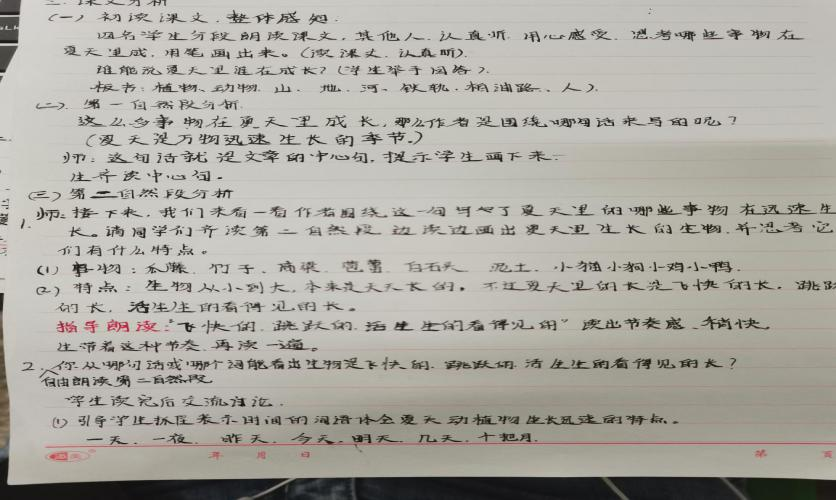 二.课文分析
(一)初读课文,整体感知.
四名学生分段朗读课文,其他人认真听.用心感受.思考哪些事物在
夏天里成.用笔画出来。(读课文.认真听).
谁能说夏天里谁在成长?(学生举手回答).
板书:植物.动物.山.地.河.铁轨.柏油路.人).
(二).第一自然段分析.
这么多事物在夏天里成长,那么作者是围绕哪句话来写的呢?
(夏天是万物迅速生长的季节.)
师:这句话就是文章的中心句,提示学生画下来.
生齐读中心句。
(三)第二自然段分析
1.师:接下来,我们来看一看作者围绕这一句写了夏天里的哪些事物在迅速生
长。请同学们齐读第二自然段.边读边画出夏天里生长的生物.并思考它
们有什么特点。
(1)事物:瓜藤.竹子.高粱.芭蕾.白石头.泥土.小猫小狗小鸡小鸭.
(2)特点:生物从小到大,本来是天天长的.不过夏天里的长是飞快的长.跳跃
的长,活生生的看得见的长。
指导朗读:"飞快的.跳跃的.活生生的看得见的"读出节奏感.稍快.
生带着这种节奏.再读一遍。
2.你从哪句话或哪个词能看出生物是飞快的.跳跃的.活生生的看得见的长?
自由朗读第二自然段
学生读完后交流讨论.
(1)引导学生抓住表示时间的词语体会夏天动植物生长迅速的特点。
一天.一夜.昨天.今天.明天.几天.个把月.
年 月 日 第 页